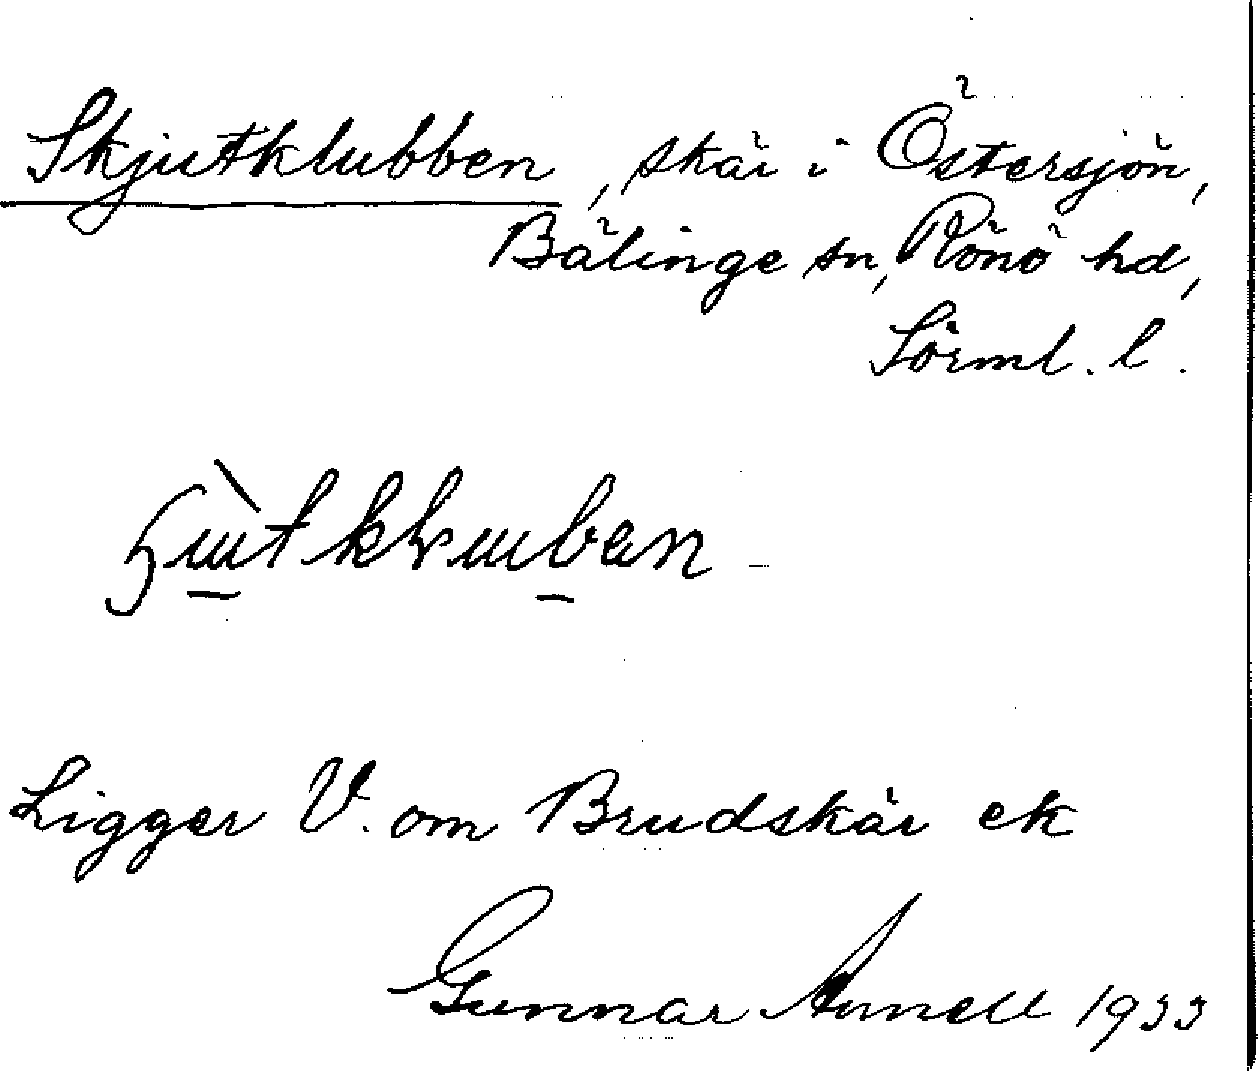 Skjutklubben, skär i Östersjön,
Bälinge sn, Rönö hd,
Sörml. l.
Ligger V. om Brudskär ek
Gunnar Annell 1933